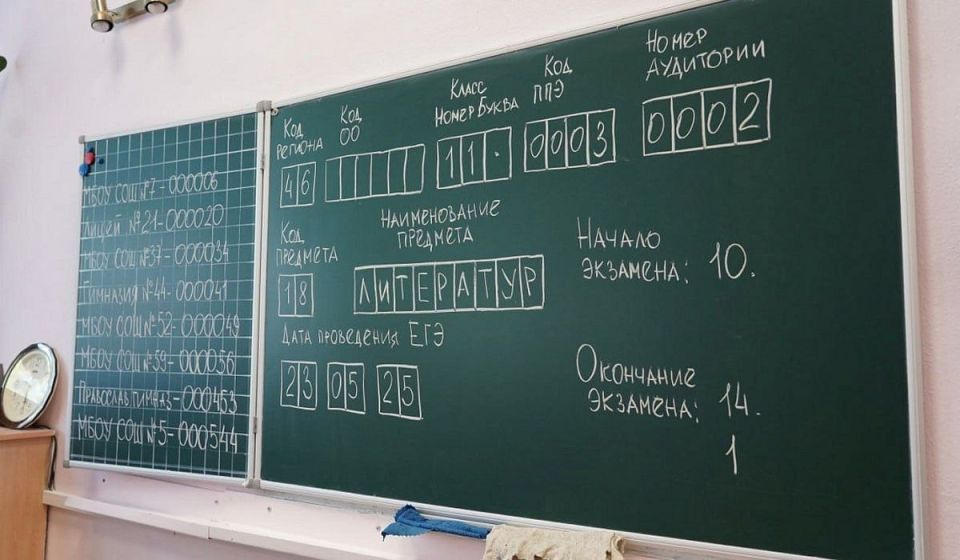 МБОУ СОШ №7-000006
Лицей №21-000020
МБОУ СОШ №37-000034
Гимназия №44-000041
МБОУ СОШ №52-000049
МБОУ СОШ №59-000056
Православ гимназ-000463
МБОУ СОШ №5-000544
Код региона
46
Код ОО
Класс
Номер Буква
11.
Код ППЭ
0003
Номер аудитории
0002
Код предмета
18
Наименование предмета
ЛИТЕРАТУР
Дата проведения ЕГЭ
23 05 25
Начало
экзамена: 10.
Окончание
экзамена: 14.
1